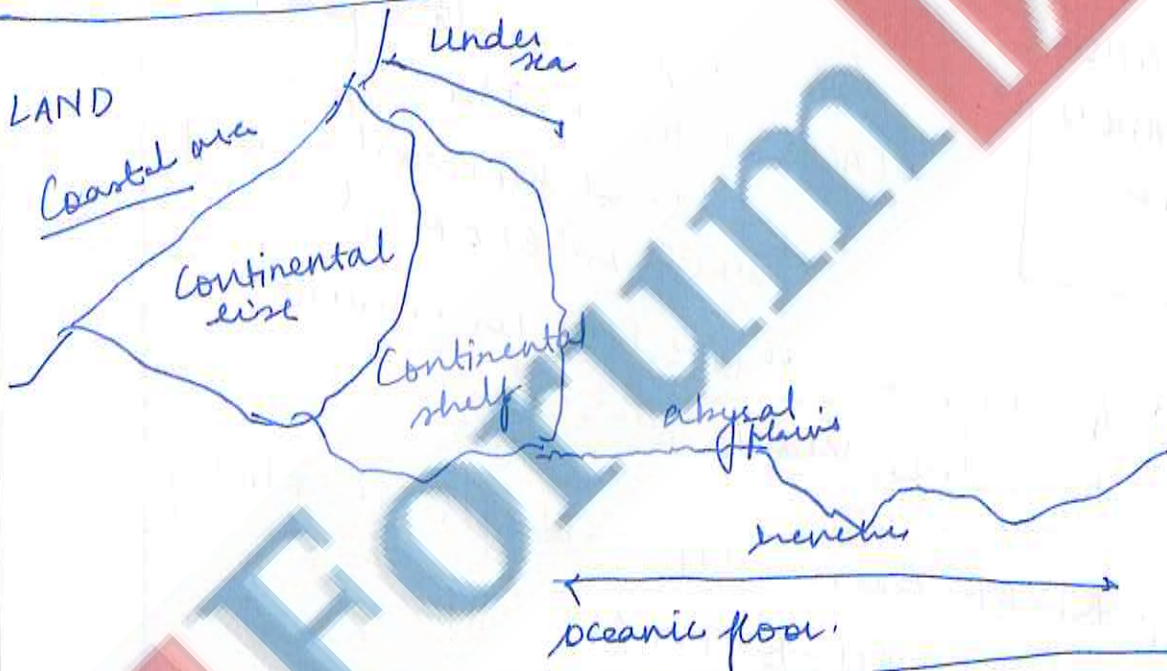 Under
sea
LAND
Coastal area
Continental
rise
Continental
shelf
abysal
plains
trenches
oceanic floor.
Forum